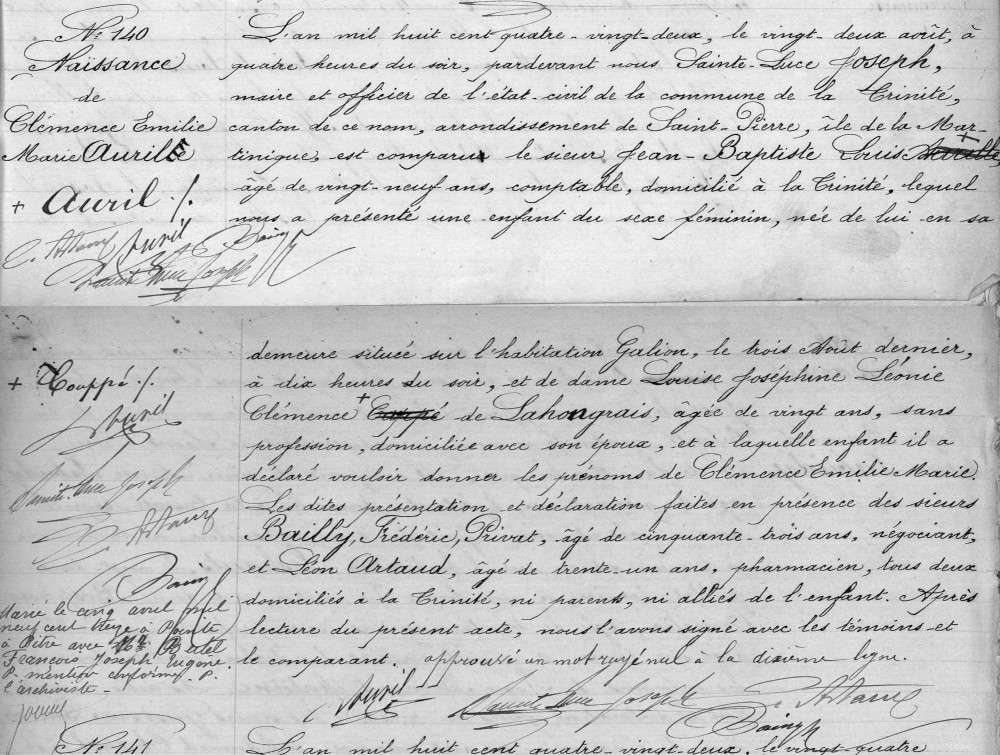 Nº 140
Naissance
de
Clémence Emilie
Marie Aurile
+ Auril ./.
L. Artaud Auril Bailly
Sainte Luce Joseph
L'an mil huit cent quatre-vingt-deux, le vingt-deux août, à
quatre heures du soir, pardevant nous Sainte-Luce Joseph,
maire et officier de l'état-civil de la commune de la Trinité,
canton de ce nom, arrondissement de Saint-Pierre, île de la Mar-
tinique, est comparu le sieur Jean-Baptiste Louis +
âgé de vingt-neuf ans, comptable, domicilié à la Trinité, lequel
nous a présenté une enfant du sexe féminin, née de lui en sa
demeure située sur l'habitation Galion, le trois Août dernier,
à dix heures du soir, et de dame Louise Joséphine Léonie
Clémence + de Lahongrais, âgée de vingt ans, sans
profession, domiciliée avec son époux, et à laquelle enfant il a
déclaré vouloir donner les prénoms de Clémence Emilie Marie.
Les dites présentation et déclaration faites en présence des sieurs
Bailly, Frédéric, Privat, âgé de cinquante-trois ans, négociant,
et Léon Artaud, âgé de trente-un ans, pharmacien, tous deux
domiciliés à la Trinité, ni parents, ni alliés de l'enfant. Après
lecture du présent acte, nous l'avons signé avec les témoins et
le comparant. approuvé un mot rayé nul à la dixième ligne.
Auril Sainte Luce Joseph L. Artaud
Bailly
+ Couppé ./.
Auril
Sainte Luce Joseph
L. Artaud
Bailly
Marié le cinq avril mil
neuf cent treize à Pointe
à Pitre avec Mr Batel
François Joseph Eugène.
P. mention conforme. P.
l'archiviste -
Nº 141
L'an mil huit cent quatre-vingt-deux, le vingt-quatre